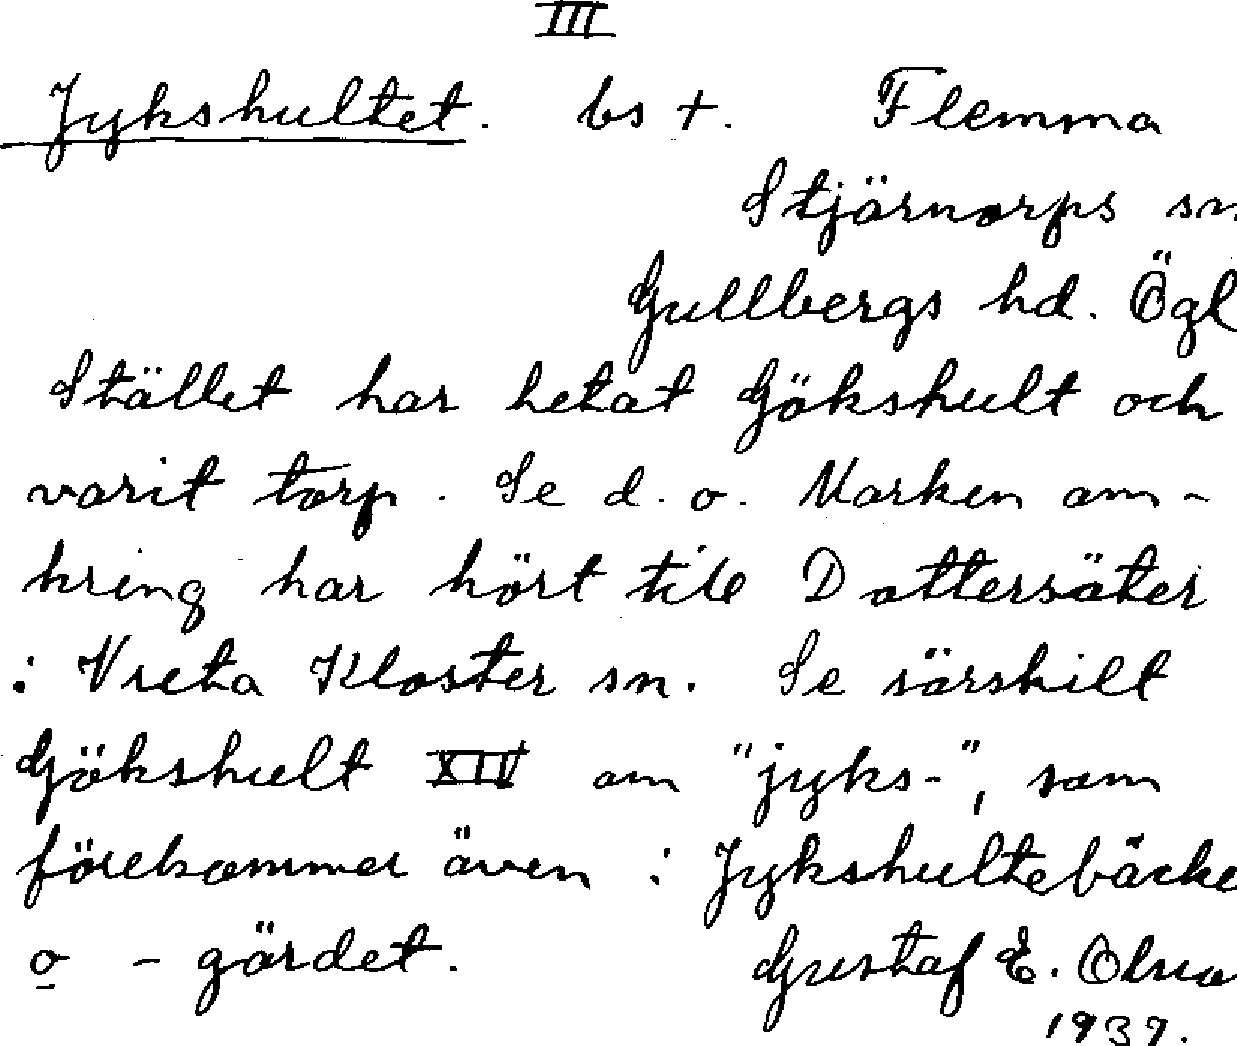 III
Jykshultet. bs +. Flemma
Stjärnorps sn
Gullbergs hd. Ögl
Stället har hetat Gökshult och
varit torp. Se d. o. Marken om-
kring har hört till Dottersäter
i Vreta Kloster sn. Se särskilt
Gökshult XIV om "jyks-", som
förekommer även i Jykshultebäcke
o - gärdet.
Gustaf E. Olsso
1937.